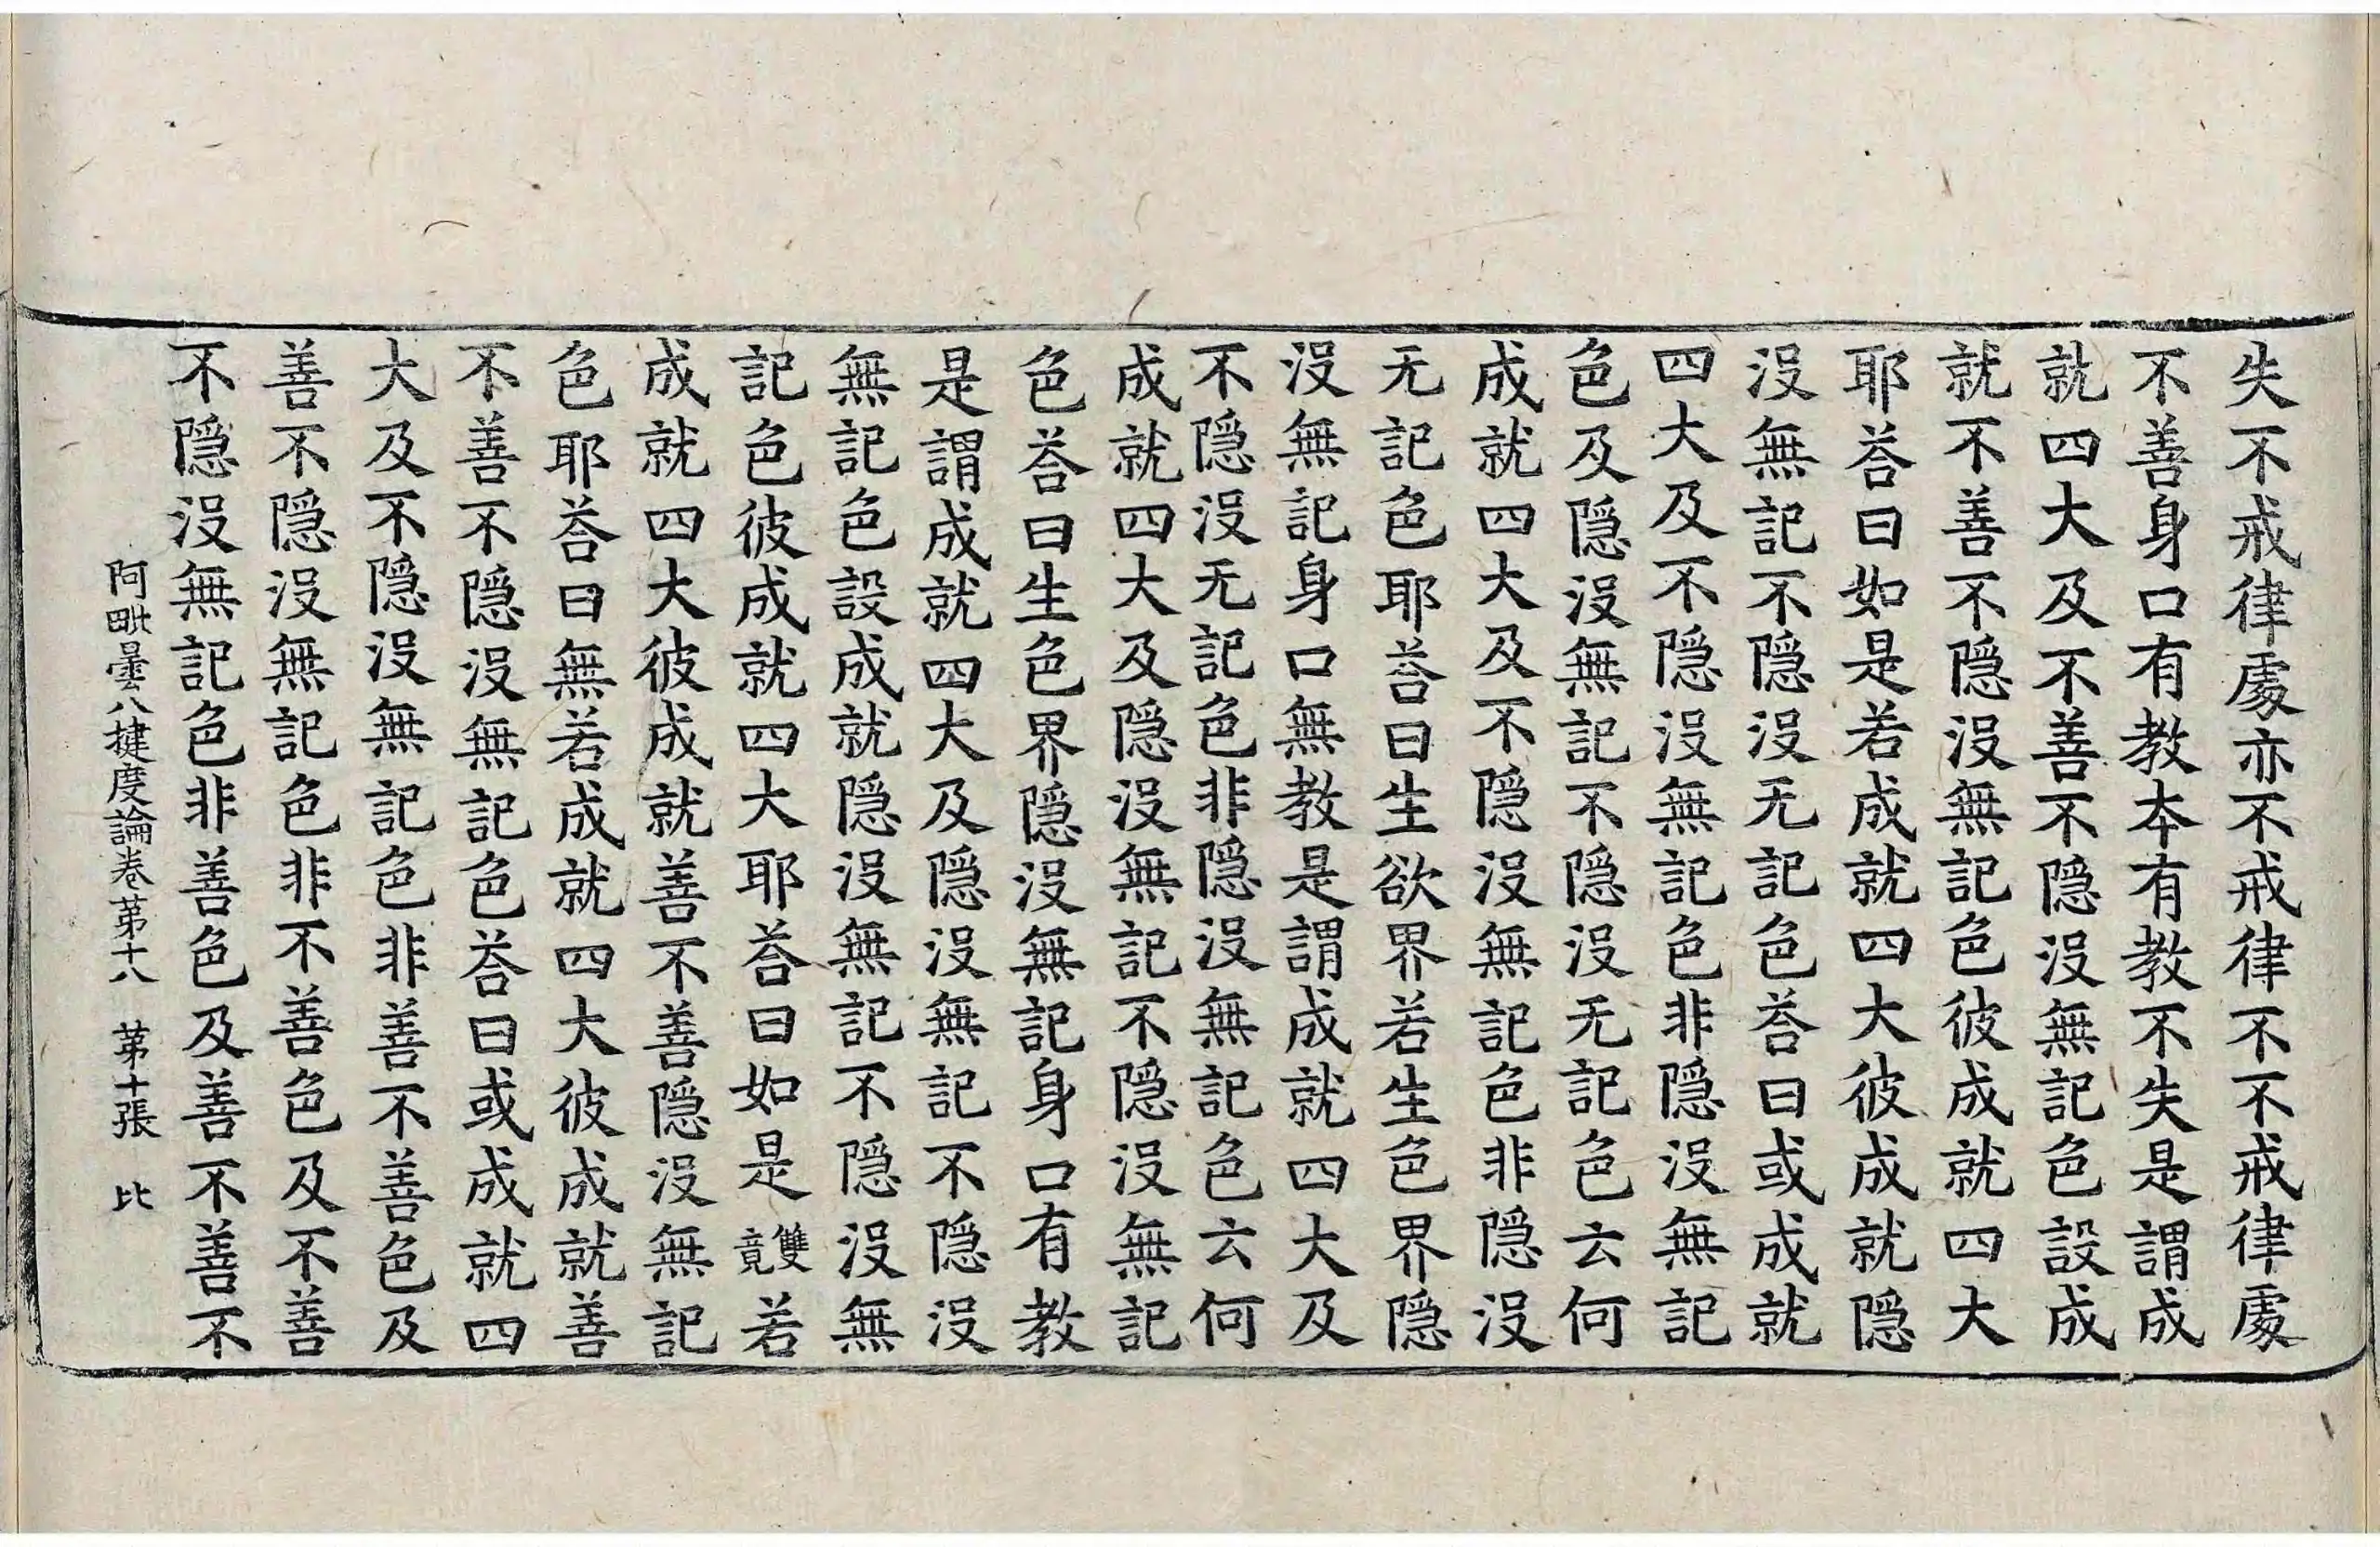 失不戒律䖏亦不戒律不不戒律䖏
不善身口有教本有教不失是謂成
就四大及不善不隱沒無記色設成
就不善不隱沒無記色彼成就四大
耶荅曰如是若成就四大彼成就隱
沒無記不隱沒无記色荅曰或成就
四大及不隱沒無記色非隱沒無記
色及隱沒無記不隱沒无記色云何
成就四大及不隱沒無記色非隱沒
无記色耶荅曰生欲界若生色界隱
沒無記身口無教是謂成就四大及
不隱沒无記色非隱沒無記色云何
成就四大及隱沒無記不隱沒無記
色荅曰生色界隱沒無記身口有教
是謂成就四大及隱沒無記不隱沒
無記色設成就隱沒無記不隱沒無
記色彼成就四大耶荅曰如是雙竟若
成就四大彼成就善不善隱沒無記
色耶荅曰無若成就四大彼成就善
不善不隱沒無記色荅曰或成就四
大及不隱沒無記色非善不善色及
善不隱沒無記色非不善色及不善
不隱沒無記色非善色及善不善不
阿毗曇八揵度論卷苐十八 苐十張 比